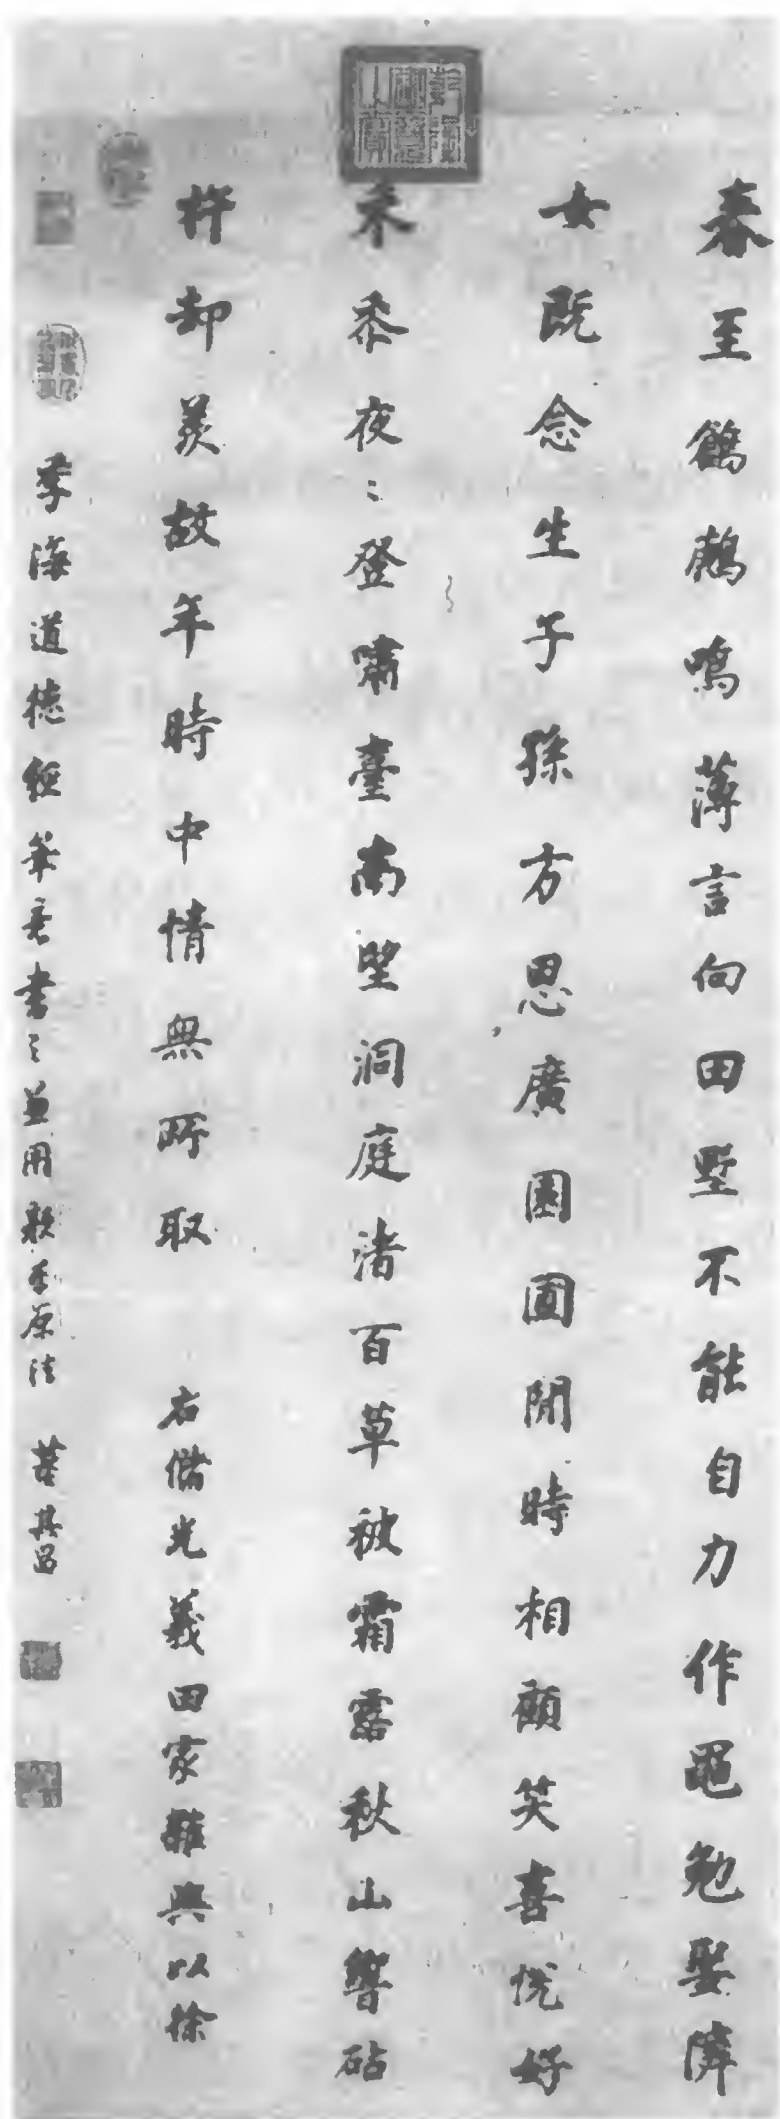 春至鶬鶊鳴薄言向田墅不能自力作黽勉娶鄰
女既念生子孫方思廣園圃閒時相顧笑喜悅好
禾黍夜〻登嘯臺高望洞庭渚百草被霜露秋山響砧
杵却羨故年時中情無所取　右儲光羲田家雜興以徐
季海道德經筆意書之兼用顏平原法　董其昌